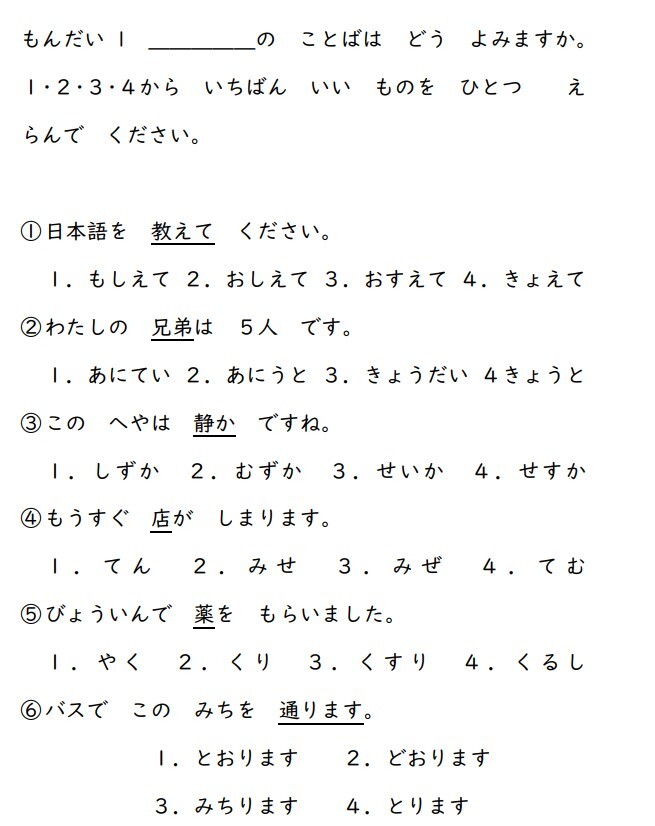 もんだい１　＿＿＿＿＿の　ことばは　どう　よみますか。
１・２・３・４から　いちばん　いい　ものを　ひとつ　　え
らんで　ください。
①日本語を　教えて　ください。
１．もしえて ２．おしえて ３．おすえて ４．きょえて
②わたしの　兄弟は　５人　です。
１．あにてい ２．あにうと ３．きょうだい ４きょうと
③この　へやは　静か　ですね。
１．しずか　２．むずか　３．せいか　４．せすか
④もうすぐ　店が　しまります。
１．てん　２．みせ　３．みぜ　４．てむ
⑤びょういんで　薬を　もらいました。
１．やく　２．くり　３．くすり　４．くるし
⑥バスで　この　みちを　通ります。
１．とおります　　２．どおります
３．みちります　　４．とります